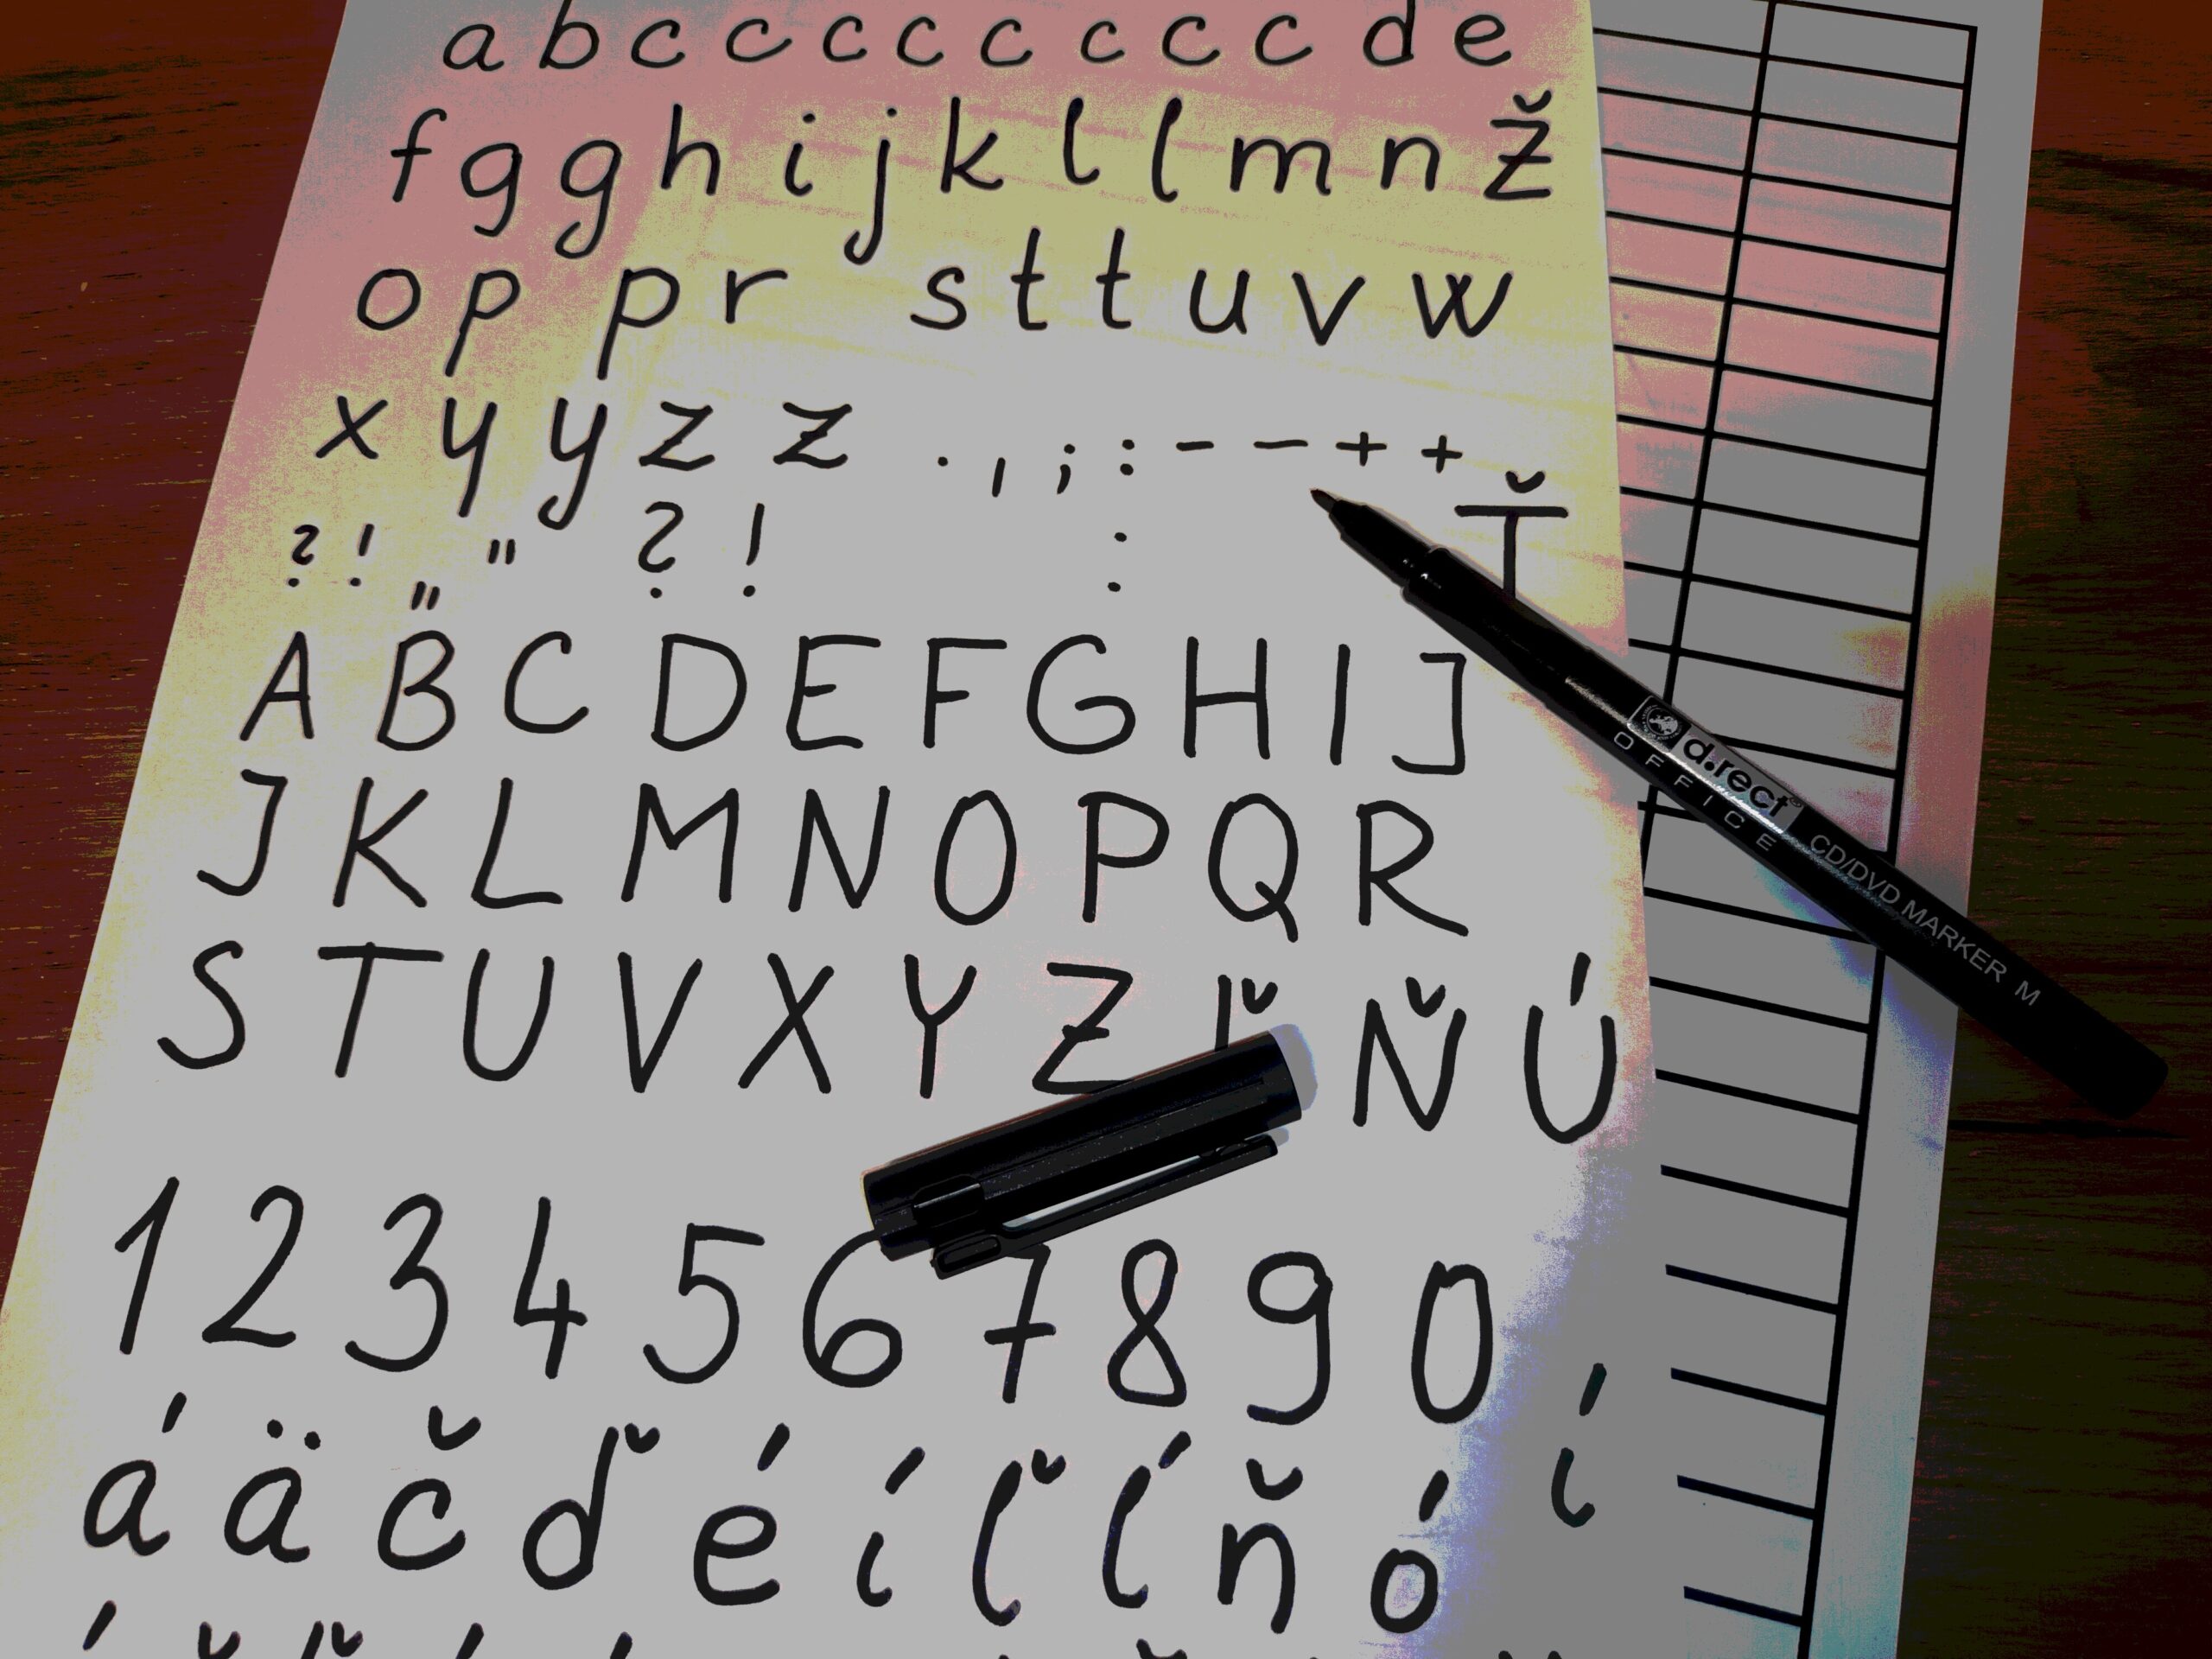 a b c c c c c c c c d e
f g g h i j k l l m n Ž
o p p r s t t u v w
x y y z z . , ; : - - + +
? ! „ " ? ! : Ť
A B C D E F G H I J
J K L M N O P Q R
S T U V X Y Z Ň Ú
1 2 3 4 5 6 7 8 9 0
á ä č ď é í ľ ĺ ň ó í
d.rect®
OFFICE
CD/DVD MARKER M